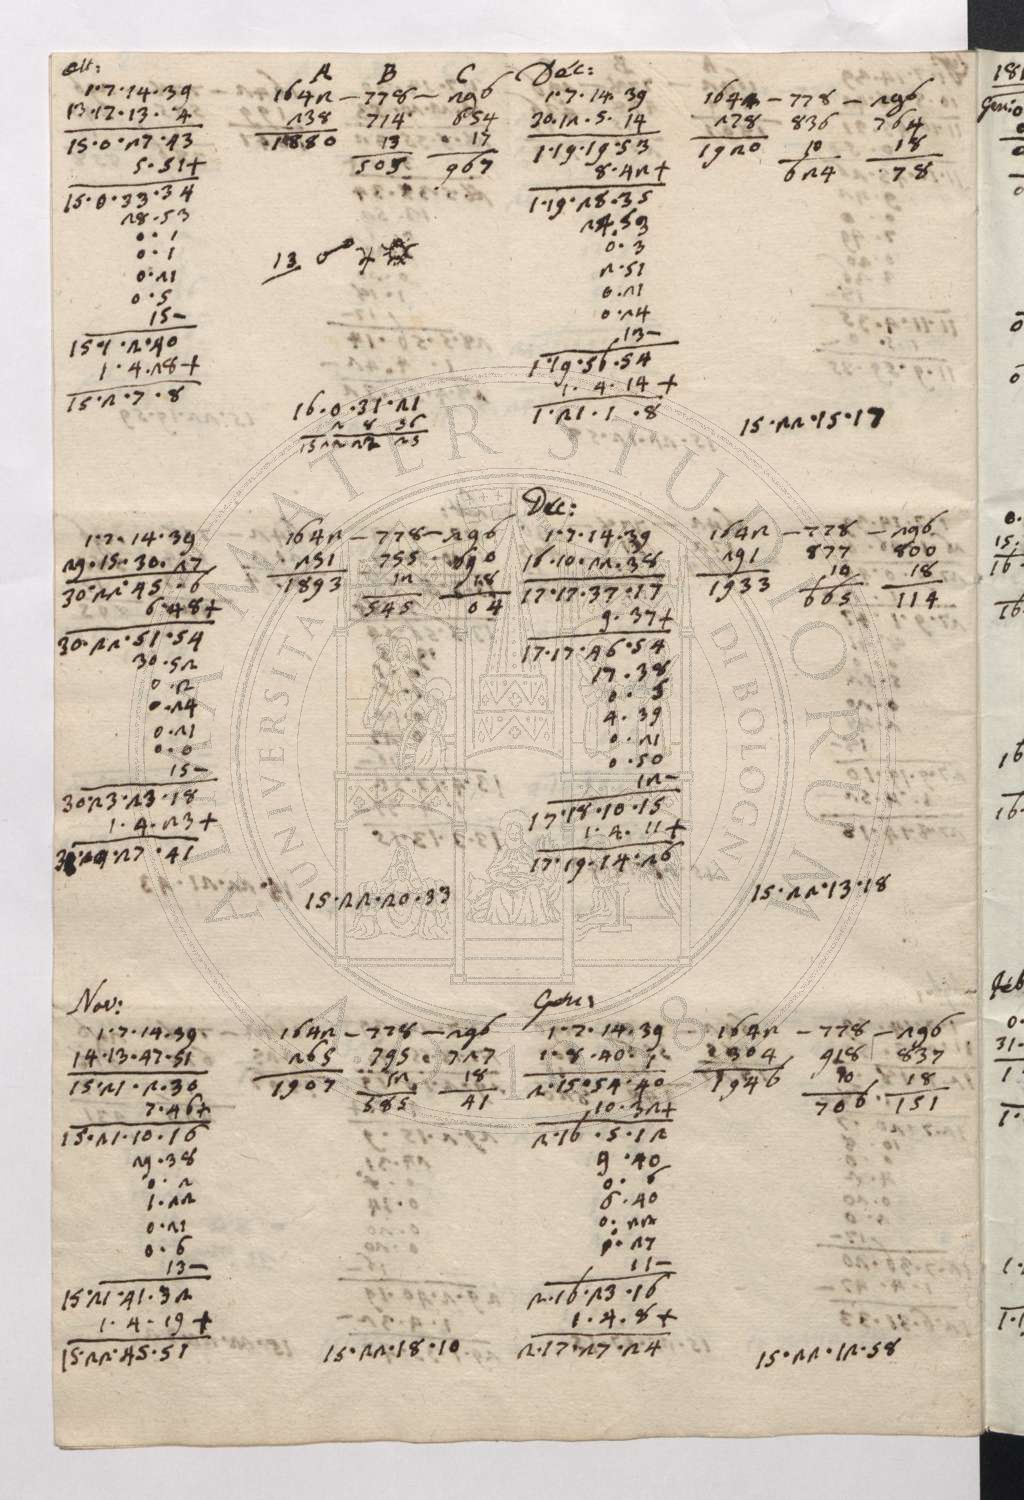 Ott:
1·7·14·39
13·17·13·4
15·0·27·43
5·51+
15·0·33·34
28·53
0·1
0·1
0·21
0·5
15–
15·1·2·40
1·4·28+
15·2·7·8
A B C
1642 – 778 – 296
238 714 654
1880 13 17
505 967
13 ☍ ♃ ☼
16·0·31·21
2 8 36
15 22 22 45
Dec:
1·7·14·39
20·12·5·14
1·19·19·53
8·42+
1·19·28·35
24·53
0·3
2·51
0·21
0·24
13–
1·19·56·54
1·4·14+
1·21·1·8
1642 – 778 – 296
278 836 764
1920 10 18
624 78
15·22·15·17
1·7·14·39
29·15·30·27
30·22·45·6
6·48+
30·22·51·54
30·52
0·2
0·24
0·21
0·0
15–
30·23·23·18
1·4·23+
30·24·27·41
1642 – 778 – 296
251 755 690
1893 12 18
545 04
15·22·20·33
Dec:
1·7·14·39
16·10·22·38
17·17·37·17
9·37+
17·17·46·54
17·38
0·5
4·39
0·21
0·50
12–
17·18·10·15
1·4·11+
17·19·14·26
1642 – 778 – 296
291 877 800
1933 10 18
665 114
15·22·13·18
Nov:
1·7·14·39
14·13·47·51
15·21·2·30
7·46+
15·21·10·16
29·38
0·2
1·22
0·21
0·6
13–
15·21·41·32
1·4·19+
15·22·45·51
1642 – 778 – 296
265 795 727
1907 12 18
585 41
15·22·18·10
Genn:
1·7·14·39
1·8·40·1
2·15·54·40
10·32+
2·16·5·12
9·40
0·6
6·40
0·22
0·27
11–
2·16·23·16
1·4·8+
2·17·27·24
1642 – 778 – 296
304 918 837
1946 10 18
706 151
15·22·12·58
ALMA MATER STUDIORUM
UNIVERSITÀ DI BOLOGNA
A.D. 1088